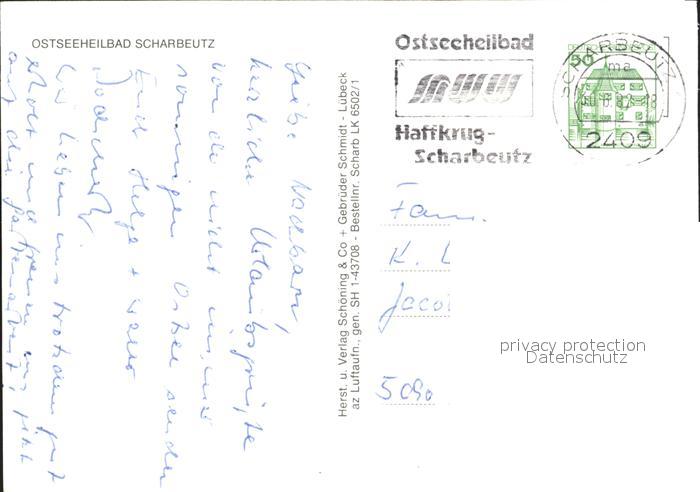 OSTSEEHEILBAD SCHARBEUTZ
Liebe Nachbarn,
herzliche Urlaubsgrüße
von der nicht immer
sonnigen Ostsee senden
Euch Helga +
wir haben uns trotzdem gut
erholt und freuen uns jetzt
auf die Gartenarbeit
Herst. u. Verlag Schöning & Co + Gebrüder Schmidt - Lübeck
az Luftaufn., gen. SH 1-43708 - Bestellnr. Scharb LK 6502/1
Ostseeheilbad
Haffkrug-
Scharbeutz
SCHARBEUTZ
ma
2409
50
Fam.
K. L
Jacol
5090
privacy protection
Datenschutz